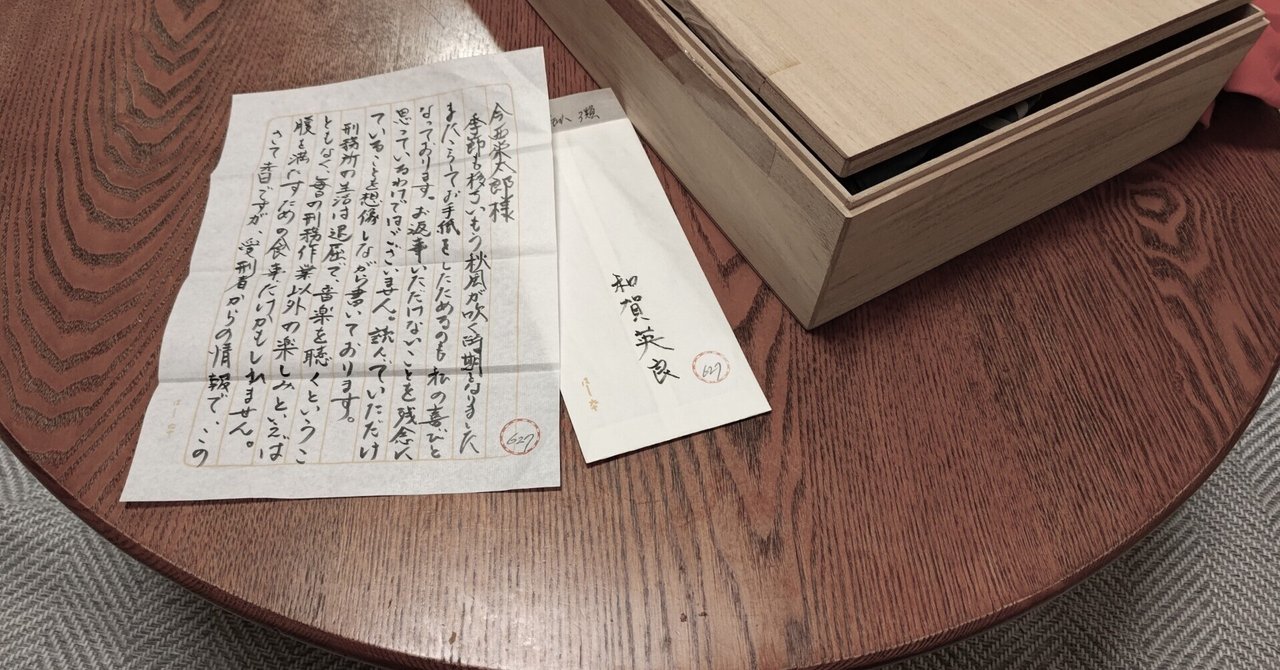 今西栄太郎様
季節も移ろいもう秋風が吹く時期となりました
また、こうしてお手紙をしたためるのも私の喜びと
なっております。お返事いただけないことを残念に
思っているわけではございません。読んでいただけ
ていることを想像しながら書いております。
刑務所の生活は退屈で、音楽を聴くというこ
ともなく、昼の刑務作業以外の楽しみといえば
腹を満たすための食事だけかもしれません。
さて昔ですが、受刑者からの情報で、この
627
和賀英良
627